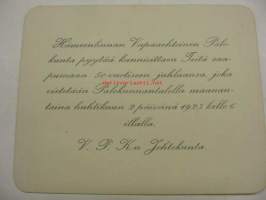 Hämeenlinnan Vapaaehtoinen Palo-
kunta pyytää kunnioittaen Teitä saa-
pumaan 50-vuotiseen juhlaansa, joka
vietetään Palokunnantalolla maanan-
taina huhtikuun 2 päivänä 1923 kello 6
illalla.
V. P. K:n Johtokunta.